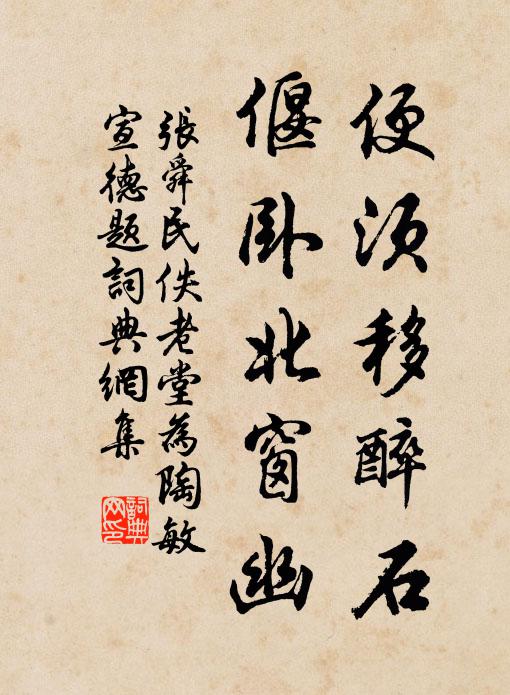 便須移醉石
偃卧北窗幽
張舜民佚老堂為陶敏
宣德題詞典網集
詞典網印